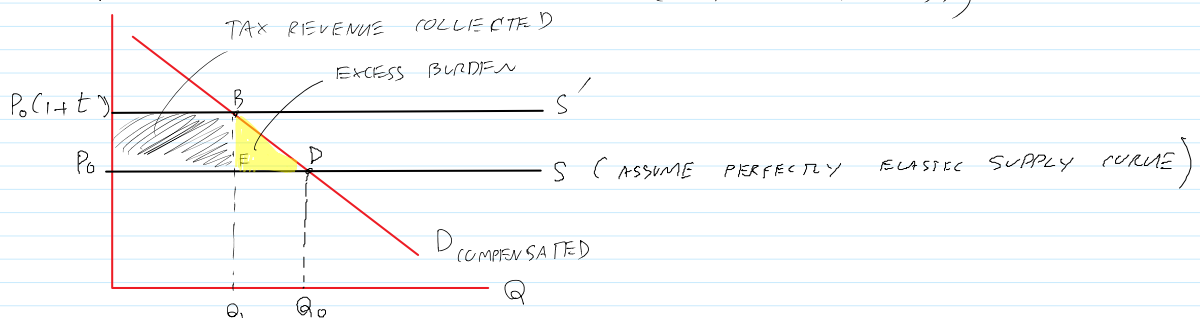 TAX REVENUE COLLECTED
EXCESS BURDEN
P₀(1+t)
B
S'
P₀
E
D
S (ASSUME PERFECTLY ELASTIC SUPPLY CURVE)
D COMPENSATED
Q
Q₁
Q₀